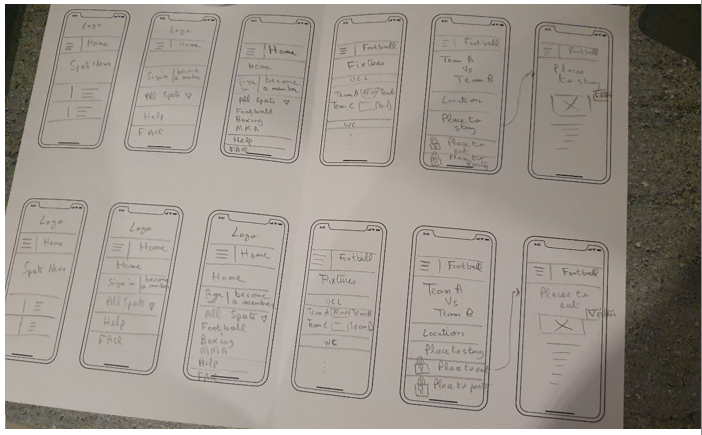 Logo
Home
Sports News
Logo
Home
Sign in
become
a member
All Sports
Help
FAQ
Home
Home
Sign
in
become
a member
All Sports
Football
Boxing
MMA
Help
FAQ
Football
Fixtures
UCL
Team A
Team B
Team C
WC
Football
Team A
Vs
Team B
Location
Place to
stay
Place to
eat
Place to
party
Football
Places
to stay
Logo
Home
Sports News
Logo
Home
Home
Sign in
become
a member
All Sports
Help
FAQ
Logo
Home
Home
Sign
in
become
a member
All Sports
Football
Boxing
MMA
Help
FAQ
Football
Fixtures
UCL
Team A
Team B
Team C
Team D
WC
Football
Team A
Vs
Team B
Location
Place to stay
Place to eat
Place to party
Football
Places to
eat